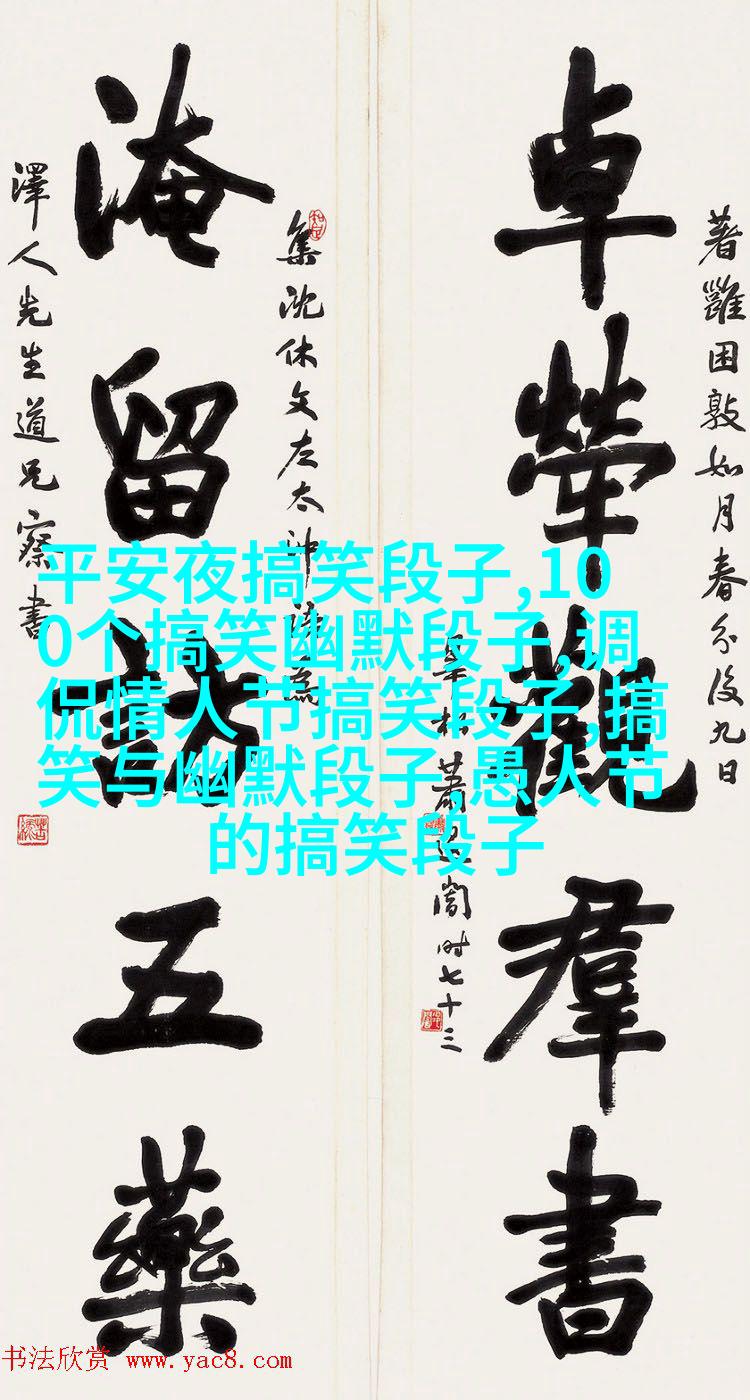 著雝困敦如月春分後九日
卓犖觀羣書
蕭退闇時七十三
集沈休文左太沖詩為
淹留訪五藥
澤人先生道兄察書
平安夜搞笑段子,10
0个搞笑幽默段子,调
侃情人节搞笑段子,搞
笑与幽默段子,愚人节
的搞笑段子
书法欣赏 www.yac8.com